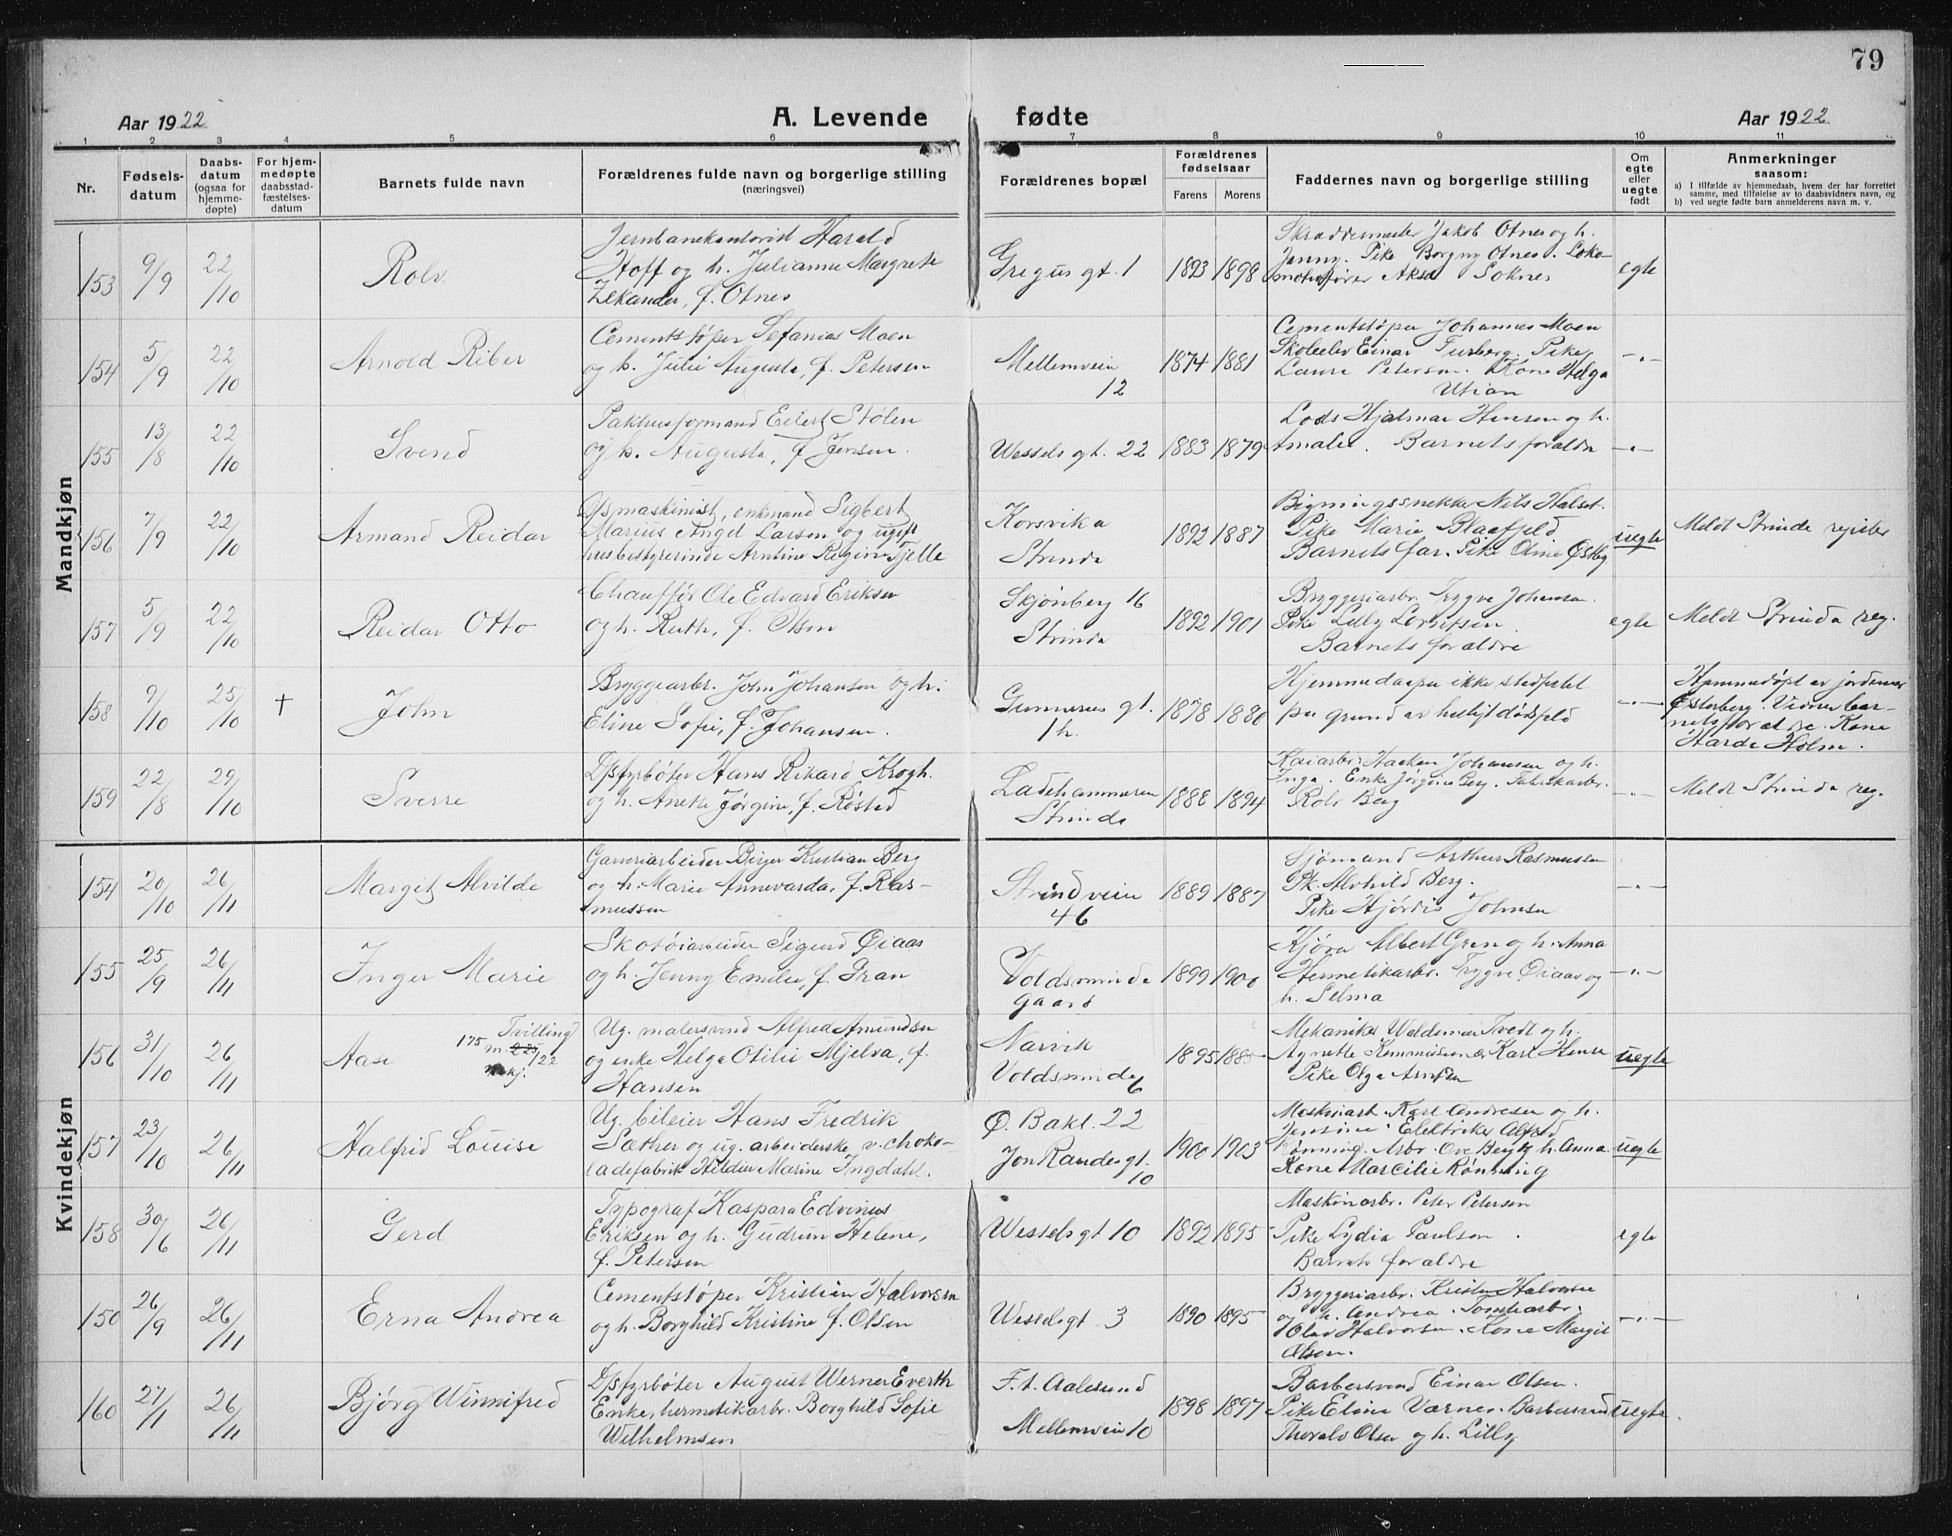 79
Aar 1922 A. Levende fødte Aar 1922
1 2 3 4 5 6 7 8 9 10 11
Nr. Fødselsdatum Daabsdatum (ogsaa for hjemmedøpte) For hjemmedøpte daabsstadfæstelsesdatum Barnets fulde navn Forældrenes fulde navn og borgerlige stilling (næringsvei) Forældrenes bopæl Forældrenes fødselsaar Farens Morens Faddernes navn og borgerlige stilling Om egte eller uegte født Anmerkninger saasom:
a) I tilfælde av hjemmedaab, hvem der har forrettet samme, med tilføielse av to daabsvidners navn, og
b) ved uegte fødte barn anmelderens navn m. v.
Mandkjøn
153 9/9 22/10 Rolv
Jernbanekontorist Harald
Hoff og h. Julianne Margrete
Zekander, f. Otnes
Gregus gt. 1 1893 1898
Skræddermester Jakob Otnes og h.
Jenny. Pike Borgny Otnes. Loko-
motivfører Aksel Soknes
egte
154 5/9 22/10 Arnold Riber
Cementstøper Sefanias Moen
og h. Julie Augusta, f. Petersen
Mellemveien
12
1874 1881
Cementstøper Johannes Moen
Skoleelev Einar Turberg. Pike
Laura Petersen. Kone Helga
Utian
-"-
155 13/8 22/10 Svend
Pakhusformand Eilert Stølen
og h. Augusta, f. Jensen.
Wessels gt. 22 1883 1879
Lods Hjalmar Hensen og h.
Amalie. Barnets forældre
-"-
156 7/9 22/10 Armand Reidar
Dsmaskinist, enkmand Sigbert
Marius Angel Larsen og ugift
husbestyrerinde Arntine Regine Tjelle
Korsvika
Strinda
1892 1887
Bygningssnekker Nils Halset.
Pike Marie Blaafjeld
Barnets far. Pike Oline Østby
uegte Meldt Strinda register
157 5/9 22/10 Reidar Otto
Chauffør Ole Edvard Eriksen
og h. Ruth, f. Olsen
Skjønberg 16
Strinda
1892 1901
Bryggeriarbr. Trygve Johansen.
Pike Lilly Lorntsen.
Barnets forældre
egte Meldt Strinda reg.
158 9/10 25/10 † John
Bryggearbr. John Johansen og h.
Eline Sofie, f. Johansen.
Gunnerus gt.
1 h.
1878 1880
Hjemmedaapen ikke stadfæstet
paa grund av hastigt dødsfald
-"-
Hjemmedøpt av jordemor
Østerberg. Vidner bar-
nets forældre. Kone
Harda Holm.
159 22/8 29/10 Sverre
D/sfyrbøter Hans Rikard Krogh.
og h. Anette Jørgine, f. Røstad
Ladehammeren
Strinda
1888 1894
Kaiarbr. Haakon Johansen og h.
Inga. Enke Jørgine Berg. Fabrikarbr.
Rolv Berg
-"- Meldt Strinda reg.
Kvindekjøn
154 20/10 26/11 Margit Alvilde
Garveriarbeider Birger Kristian Berg
og h. Marie Annevarda, f. Ras-
mussen
Strindveien
46
1889 1887
Sjømand Arthur Rasmussen
Pk. Alvhild Berg.
Pike Hjørdis Johnsen
-"-
155 25/9 26/11 Inger Marie
Skotøiarbeider Sigurd Øiaas
og h. Jenny Emilie, f. Gran
Voldsminde
gaard
1899 1900
Kjører Albert Gren og h. Anna
Hermetikarbr. Trygve Øiaas og
h. Selma
-"-
156 31/10 26/11 Aase Tvilling
175
m. 225/22
Ug. malersvend Alfred Amundsen
og enke Helga Otilie Mjelva, f.
Hansen
Narvik
Voldsminde 6
1895
Mekaniker Waldemar Tvedt og h.
Agnette Karl Hansen
Pike Olga Arntsen
uegte
157 23/10 26/11 Halfrid Louise
Ug. bileier Hans Fredrik
Sæther og ug. arbeiderske v. choko-
ladefabrik Hildur Marine Ingdahl.
Ø. Bakl. 22
Jon Raudes gt.
10
1900 1903
Maskinarb. Karl Andresen og h.
Elektriker Alfred
Rønning. Arbr. Ove Berg og h. Anna
Kone Marcilie Rønning
uegte
158 30/6 26/11 Gerd
Typograf Kaspara Edvinus
Eriksen og h. Gudrun Helene,
f. Petersen
Wessels gt 10 1892 1895
Maskinarbr. Peter Petersen
Pike Lydia Paulsen.
Barnets forældre
egte
150 26/9 26/11 Erna Andrea
Cementstøper Kristian Halvorsen
og h. Borghild Kristine f. Olsen
Wesselsgt. 3 1890 1895
Bryggeriarbr. Kristen Halvorsen
og h. Andrea. Tomtarbr.
Olav Halvorsen. Kone Margit
Olsen.
-"-
160 27/1 26/11 Bjørg Winnifred
D/sfyrbøter August Werner Everth
Enke, hermetikarbr. Borghild Sofie
Wilhelmsen
F. t. Aalesund
Mellemveien 10
1898 1897
Barbersvend Einar Olsen.
Pike Eline Varnes. Barbersvend
Thorald Olsen og h. Lilly
uegte.